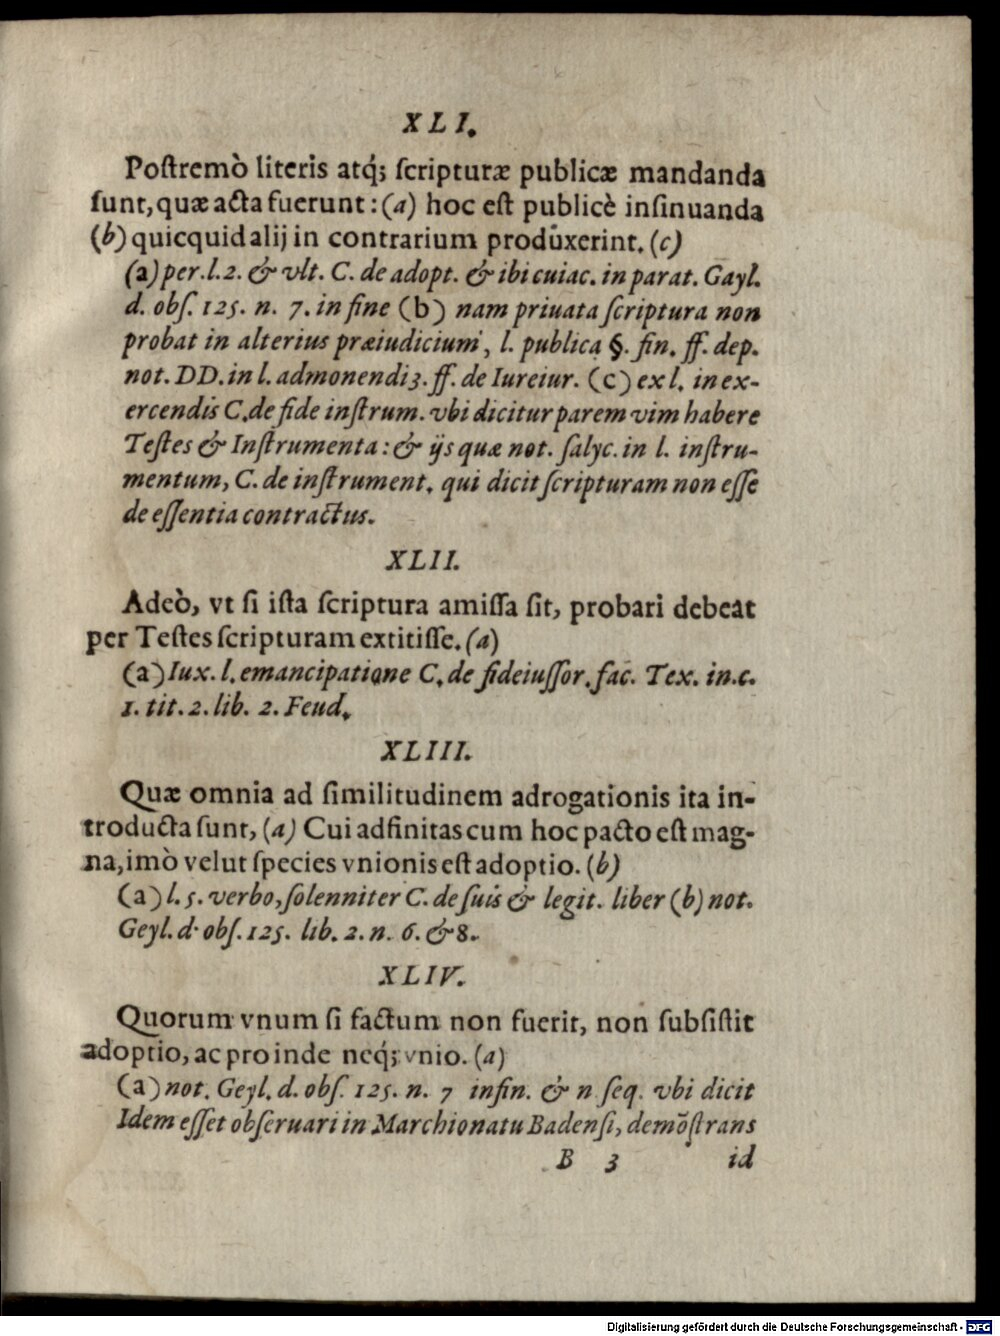 XLI.
Postremò literis atq́; scripturæ publicæ mandanda
sunt, quæ acta fuerunt: (a) hoc est publicè insinuanda
(b) quicquid alij in contrarium produxerint. (c)
(a) per. l. 2. & vlt. C. de adopt. & ibi cuiac. in parat. Gayl.
d. obs. 125. n. 7. in fine (b) nam priuata scriptura non
probat in alterius præiudicium, l. publica §. fin. ff. dep.
not. DD. in l. admonendi 3. ff. de Iureiur. (c) ex l. in ex-
ercendis C. de fide instrum. vbi dicitur parem vim habere
Testes & Instrumenta: & ijs quæ not. salyc. in l. instru-
mentum, C. de instrument. qui dicit scripturam non esse
de essentia contractus.
XLII.
Adeò, vt si ista scriptura amissa sit, probari debeat
per Testes scripturam extitisse. (a)
(a) Iux. l. emancipatione C. de fideiussor. fac. Tex. in. c.
1. tit. 2. lib. 2. Feud.
XLIII.
Quæ omnia ad similitudinem adrogationis ita in-
troducta sunt, (a) Cui adfinitas cum hoc pacto est mag-
na, imò velut species vnionis est adoptio. (b)
(a) l. 5. verbo, solenniter C. de suis & legit. liber (b) not.
Geyl. d. obs. 125. lib. 2. n. 6. & 8.
XLIV.
Quorum vnum si factum non fuerit, non subsistit
adoptio, ac proinde neq́; vnio. (a)
(a) not. Geyl. d. obs. 125. n. 7 in fin. & n seq. vbi dicit
Idem esset obseruari in Marchionatu Badensi, demõstrans
B 3 id
Digitalisierung gefördert durch die Deutsche Forschungsgemeinschaft - DFG